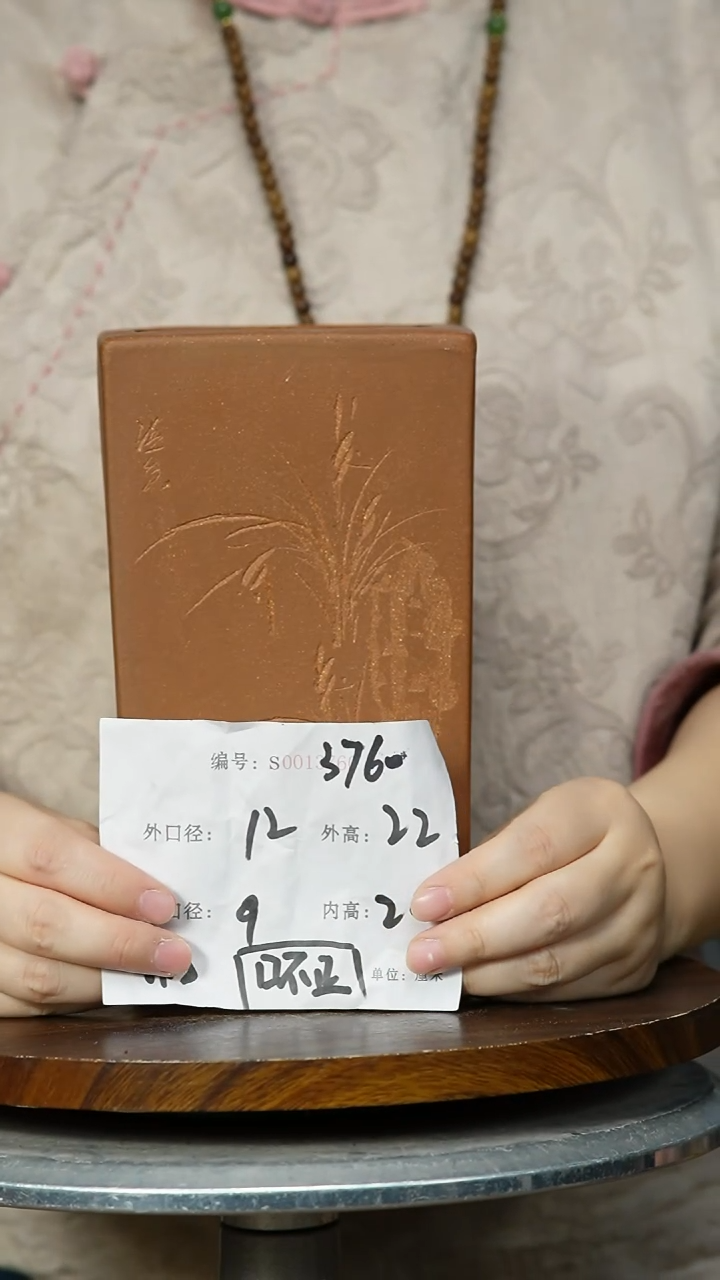 编号：S001 3760
外口径：12 外高：22
口径：9 内高：2
口不正 单位：厘米